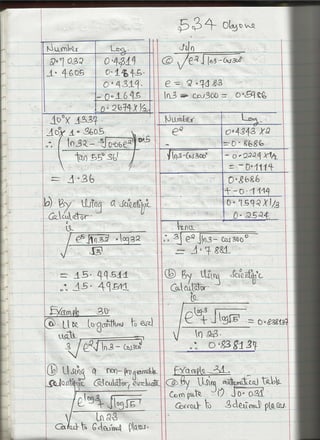 534 Olay one
Number Log
2.7032 0.4319
1.4605 0.1645
0.4319
- 0.1645
0.2674 x ½
10° x 1.537
10° x 1.3605
∴ ( ln 32 - ∛0.06e² )^0.5
tan 55° 36'
= 1.36
b) By Using a scientific
Calculator
ie
√ e⁵ √ln32 · log32
√13
= 15.49511
∴ 15.49511
Example 30
@ Use logarithms to eval
uate
∛ e² √ln3 - cos300
(b) Using a non-programmable
Scientific Calculator, evaluate
√ e^log3 + √log√5
ln 23
Correct to 6 decimal places.
Soln
@ √e² √ln3 - cos300
e = 2.7183
ln3 - cos300 = 0.5986
Number Log
e² 0.4343 x 2
= 0.8686
√ln3 - cos300° - 0.2229 x ½
= - 0.1114
0.8686
+ - 0.1114
0.7592 x 1/3
0.2524
hence
∴ ∛ e² √ln3 - cos300°
= 1.7881
(b) By Using Scientific
Calculator
ie
√ e^log3 + √log√5 = 0.838137
ln 23.
∴ 0.838137
Example 31.
@ By Using mathematical table
Compute i) √0.031
Correct to 3 decimal places